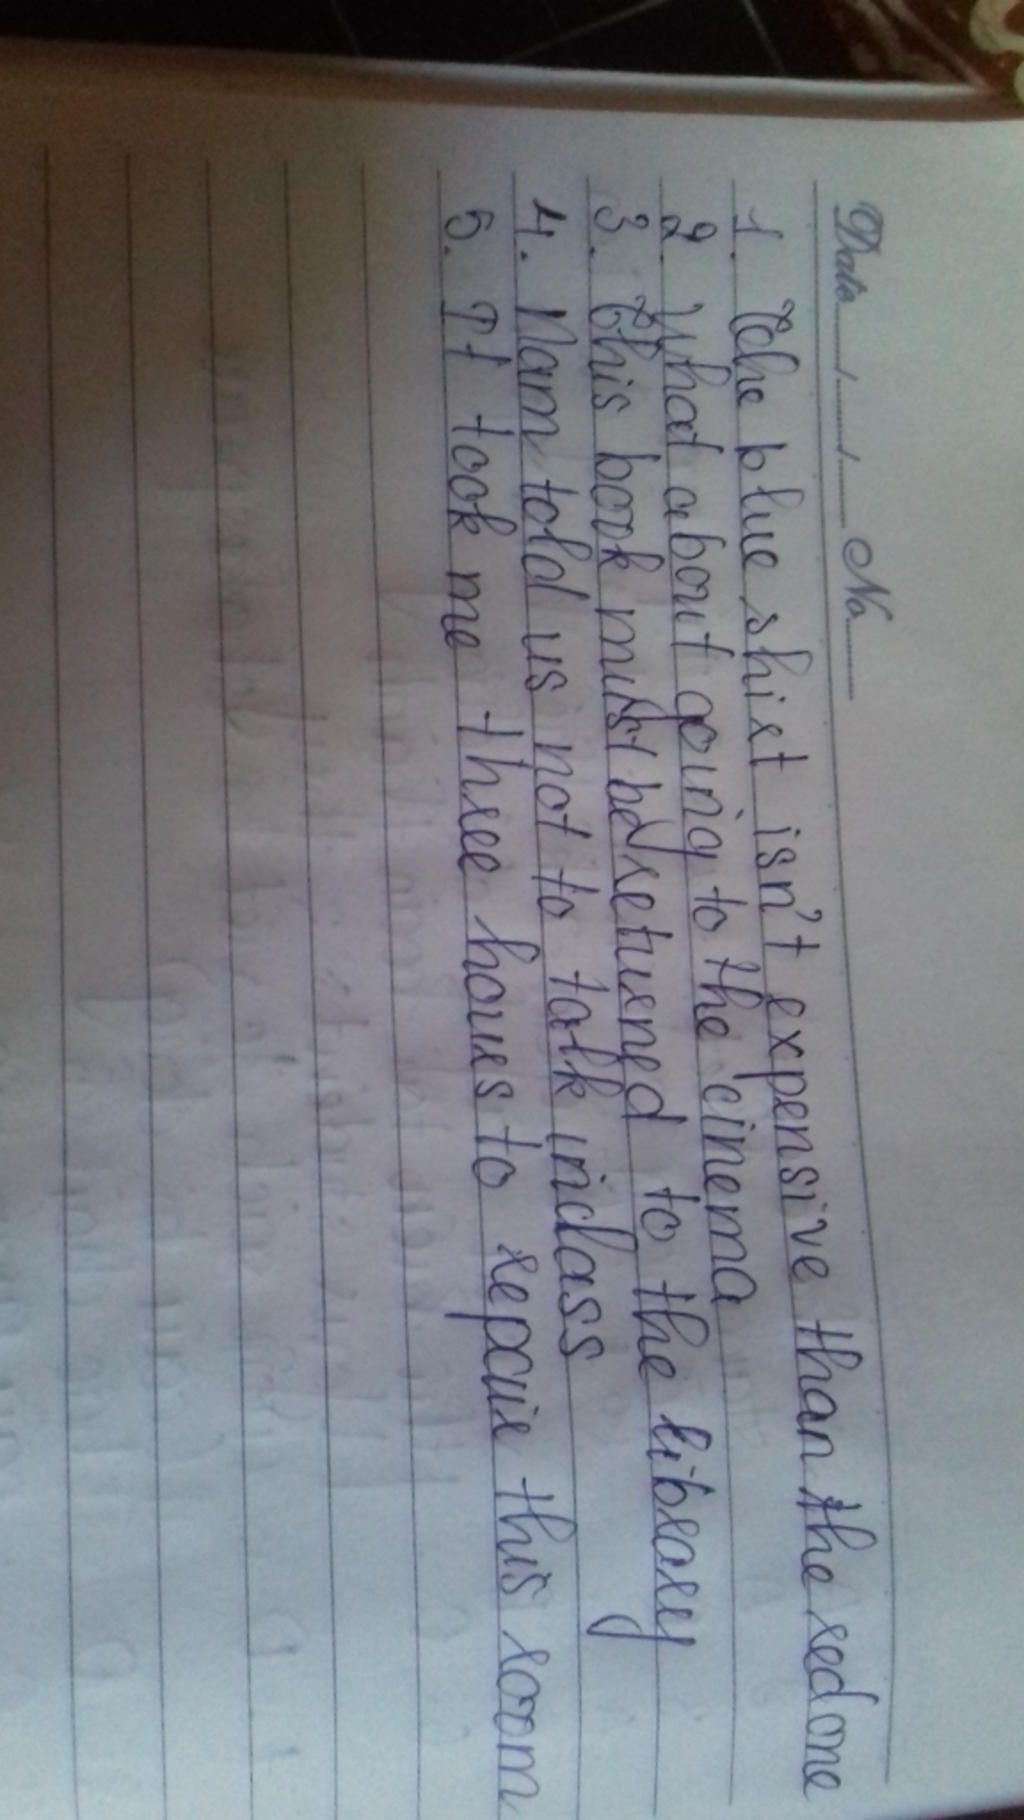 Date...../...../..... No.......
1. The blue shirt isn't expensive than the red one
2. What about going to the cinema
3. This book must be returned to the library
4. Nam told us not to talk in class
5. It took me three hours to repair this room